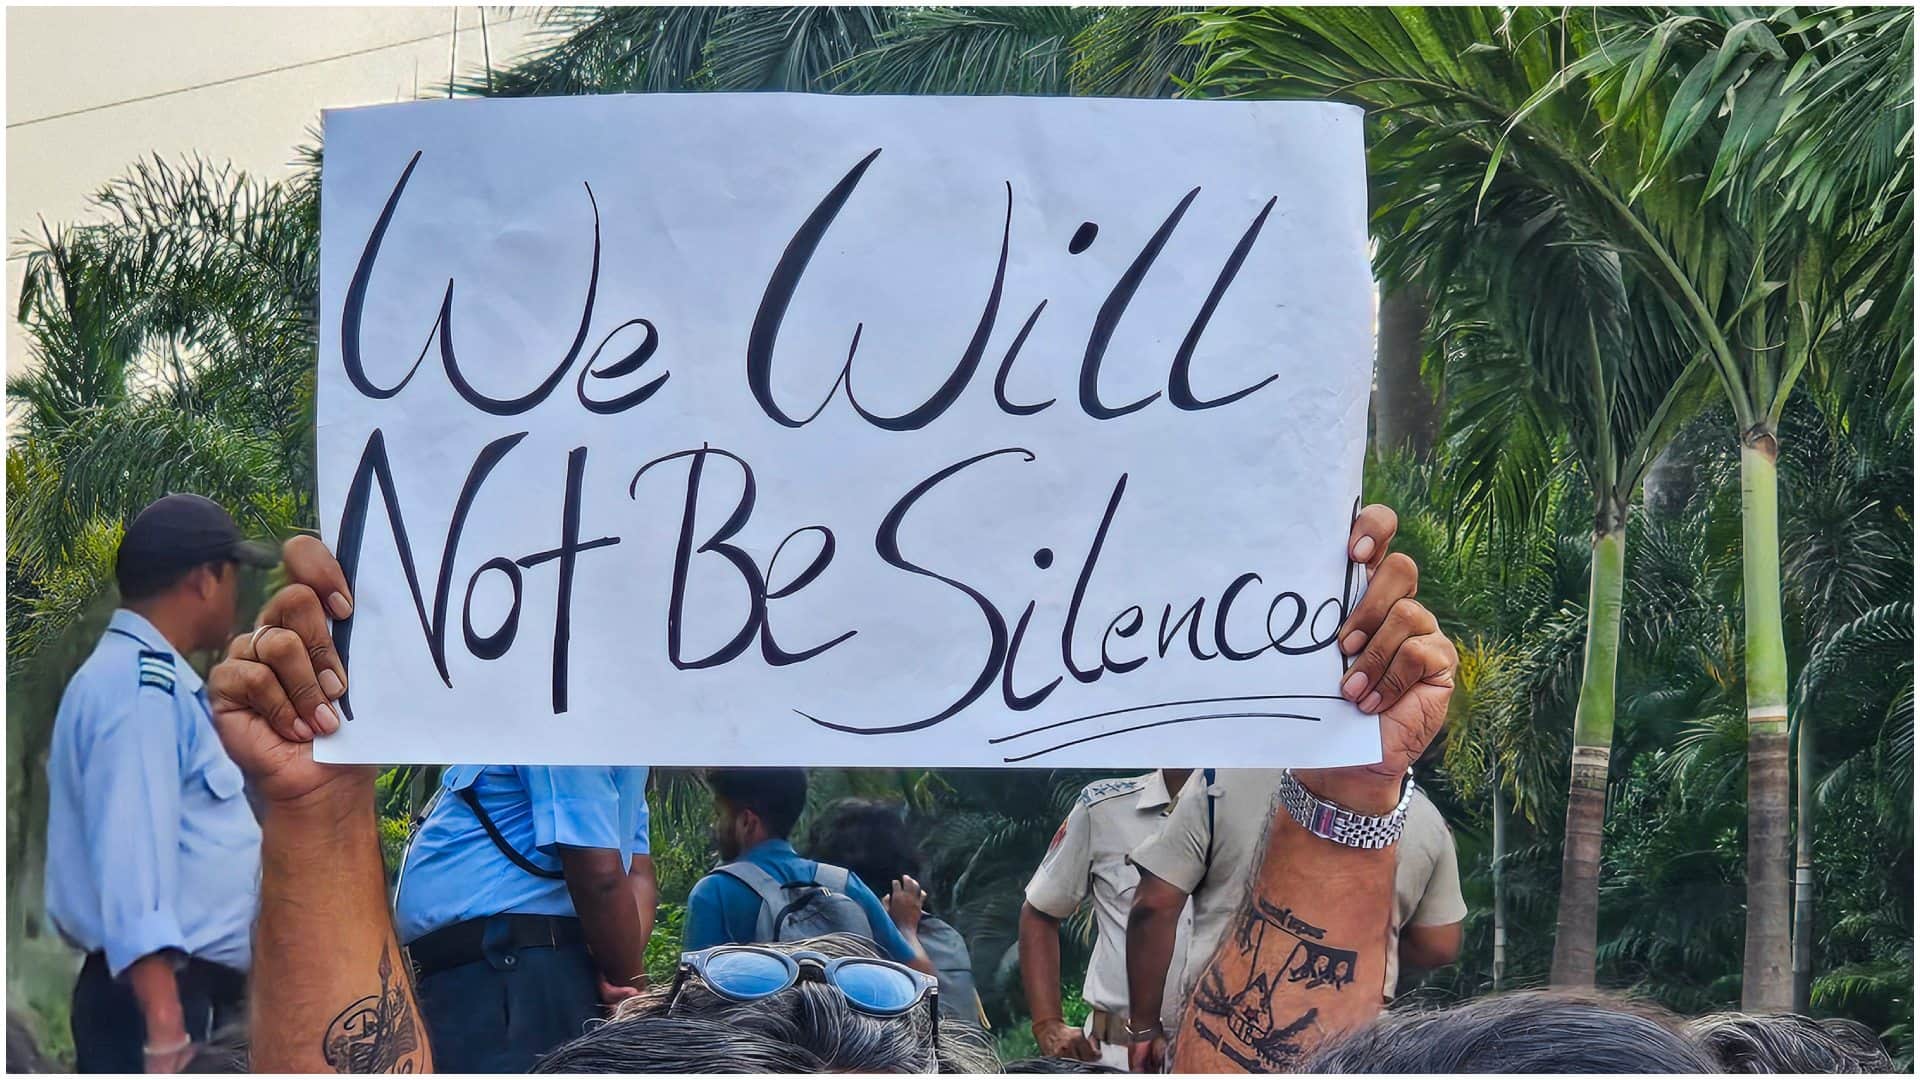 We Will
Not Be Silenced